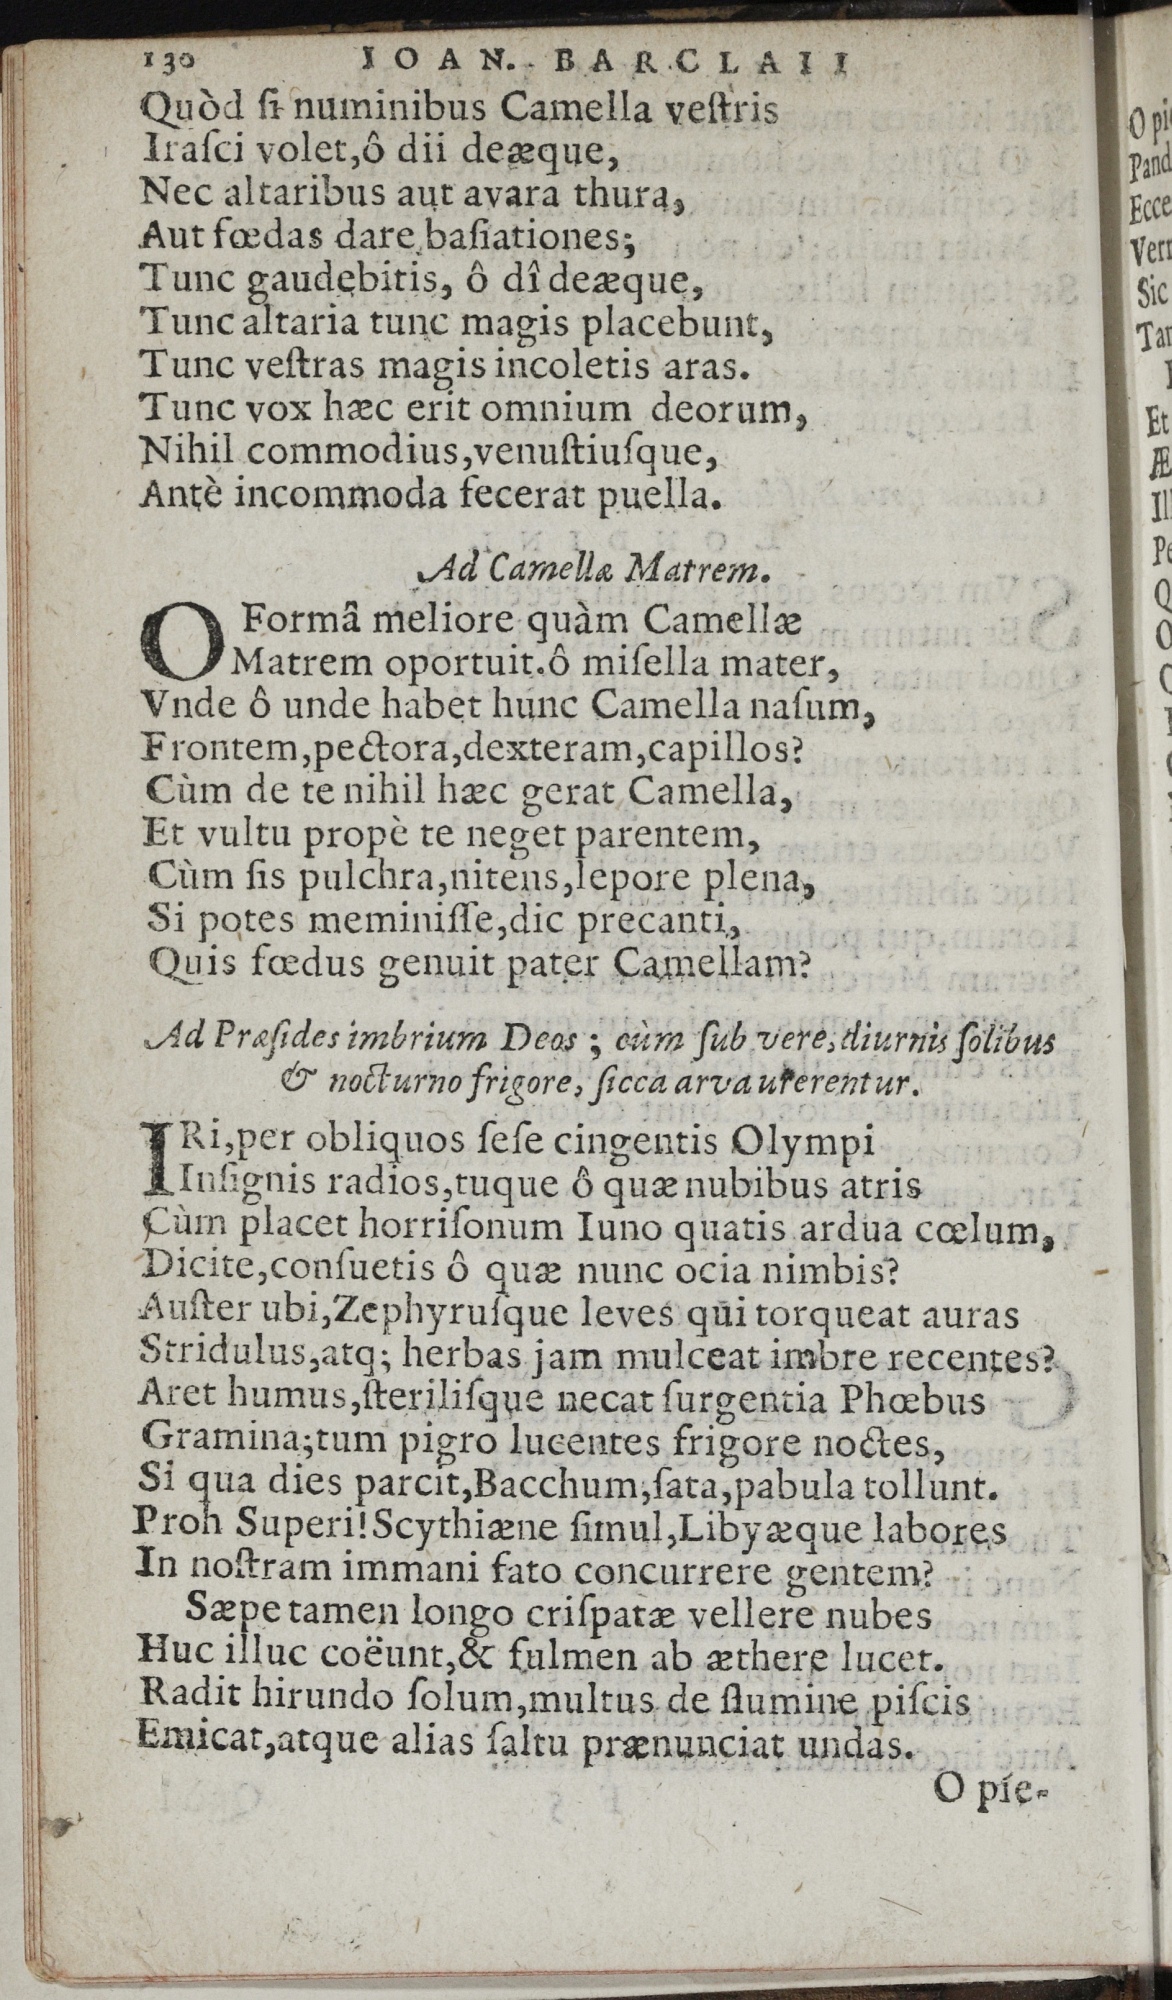 130 IOAN. BARCLAII
Quòd ſi numinibus Camella veſtris
Iraſci volet, ô dii deæque,
Nec altaribus aut avara thura,
Aut fœdas dare baſiationes;
Tunc gaudebitis, ô dî deæque,
Tunc altaria tunc magis placebunt,
Tunc veſtras magis incoletis aras.
Tunc vox hæc erit omnium deorum,
Nihil commodius, venuſtiuſque,
Antè incommoda fecerat puella.
Ad Camellæ Matrem.
O Formâ meliore quàm Camellæ
Matrem oportuit. ô miſella mater,
Vnde ô unde habet hunc Camella naſum,
Frontem, pectora, dexteram, capillos?
Cùm de te nihil hæc gerat Camella,
Et vultu propè te neget parentem,
Cùm ſis pulchra, nitens, lepore plena,
Si potes meminiſſe, dic precanti,
Quis fœdus genuit pater Camellam?
Ad Præſides imbrium Deos; cùm ſub vere, diurnis ſolibus
& nocturno frigore, ſicca arva urerentur.
IRi, per obliquos ſeſe cingentis Olympi
Inſignis radios, tuque ô quæ nubibus atris
Cùm placet horriſonum Iuno quatis ardua cœlum,
Dicite, conſuetis ô quæ nunc ocia nimbis?
Auſter ubi, Zephyruſque leves qui torqueat auras
Stridulus, atq; herbas jam mulceat imbre recentes?
Aret humus, ſteriliſque necat ſurgentia Phœbus
Gramina; tum pigro lucentes frigore noctes,
Si qua dies parcit, Bacchum, ſata, pabula tollunt.
Proh Superi! Scythiæne ſimul, Libyæque labores
In noſtram immani fato concurrere gentem?
Sæpe tamen longo criſpatæ vellere nubes
Huc illuc coëunt, & fulmen ab æthere lucet.
Radit hirundo ſolum, multus de flumine piſcis
Emicat, atque alias ſaltu prænunciat undas.
O pie-
O pi
Pand
Ecce
Sic
Et
Æ